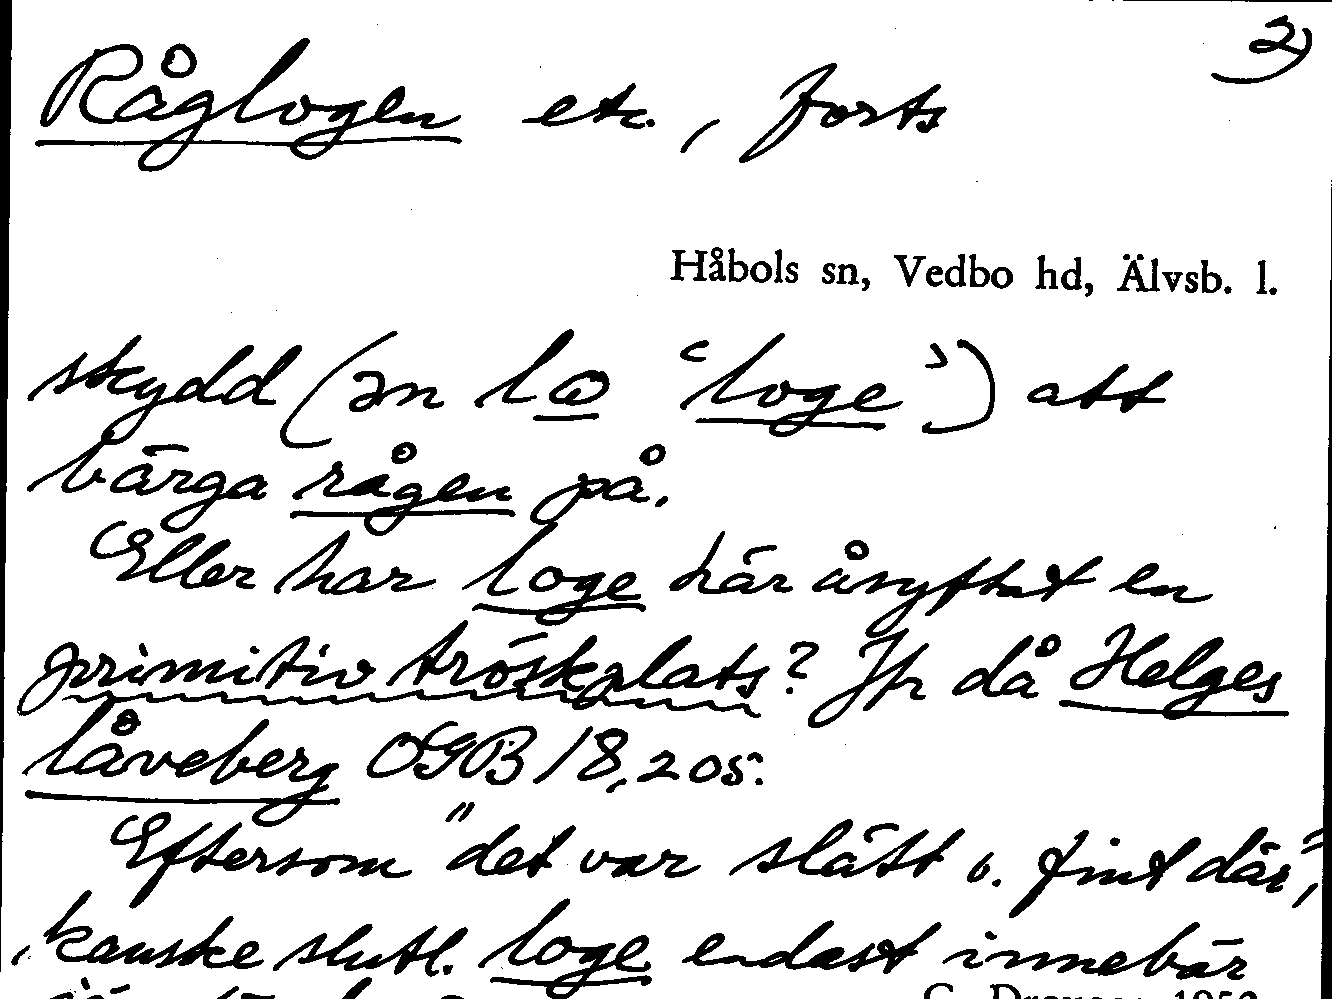 2)
Råglogen etc., forts
Håbols sn, Vedbo hd, Älvsb. l.
skydd (ən lɷ ‘loge’) att
bärga rågen på.
Eller har loge här åsyftat en
primitiv tröskplats? Jfr då Helges
låveberg OGB 18, 205.
Eftersom "det var slätt o. fint där",
kanske slutl. loge endast innebär